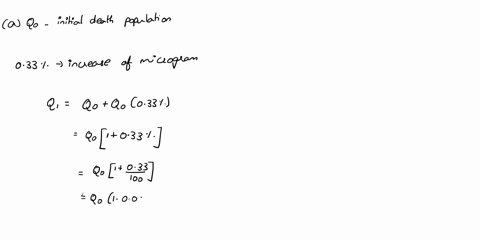 (a) Q0 - initial death population
0.33 % → increase of microgram
Q1 = Q0 + Q0 (0.33%)
= Q0 [1 + 0.33 %.]
= Q0 [1 + 0.33/100]
= Q0 (1.0.0.